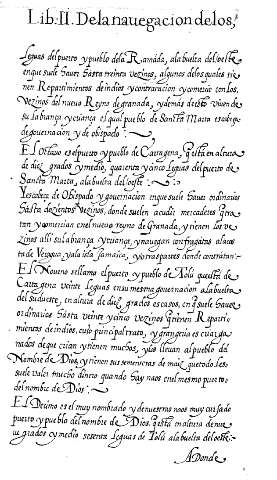 Lib: II. De la nauegacion de los,
leguas del puerto y pueblo de la Ramada, a la buelta del oeste
en que suele hauer hasta treinta vezinos, algunos de los quales tie
nen Repartimientos de indios y contratacion y comercio con los
vezinos del nueuo Reyno de granada, y demas desto viuen de
su labrança y criança es qual pueblo de Sancta Marta es cabeça
de gouernacion y de obispado.
El Octauo es el puerto y pueblo de Cartagena, questa en altura
de diez grados y medio, quarenta y cinco leguas del puerto de
Sancta Marta, a la buelta del oeste
Y es cabeça de Obispado y gouernacion en que suele hauer ordinarios
hasta dozientos vezinos, donde suelen acudir mercaderes que tra
tan y comercian en el nuevo reyno de Granada, y tienen los ve
zinos alli su labrança y criança, y nauegan con fragatas a la cos
ta de Veragua y a la isla Jamaica, y otras partes donde contratan
El Noueno se llama el puerto y pueblo de Tolu questa de
Cartagena veinte leguas en su mesma gouernacion a la buelta
del sudueste, en altura de diez grados escasos, en que suele hauer
ordinarios hasta veinte y cinco vezinos q tienen Reparti
mientos de indios, cuyo principal trato, y grangeria es criar ga
nados de que crian y tienen muchos, y los lleuan al pueblo del
Nombre de Dios, y tienen sus sementeras de maiz, que todo les
suele valer mucho dinero quando hay naos en el mesmo puerto
del nombre de Dios
El Decimo es el muy nombrado y de nuestras naos muy cursado
puerto y pueblo del nombre de Dios, questa en altura de nue
ue grados y medio sesenta leguas de Tolu a la buelta del oeste
A Donde